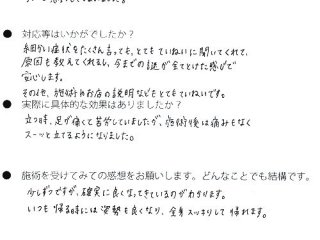 ● 対応等はいかがでしたか？
細かい症状をたくさん言っても、とてもていねいに聞いてくれて、
原因も教えてくれるし、今までの謎が全てとけた感じで
安心します。
その他、施術やお店の説明などもとてもていねいです。
● 実際に具体的な効果はありましたか？
立つ時、足が痛くて苦労していましたが、施術後は痛みもなく
スーッと立てるようになりました。
● 施術を受けてみての感想をお願いします。どんなことでも結構です。
少しずつですが、確実に良くなってきているのがわかります。
いつも帰る時には姿勢も良くなり、全身スッキリして帰れます。